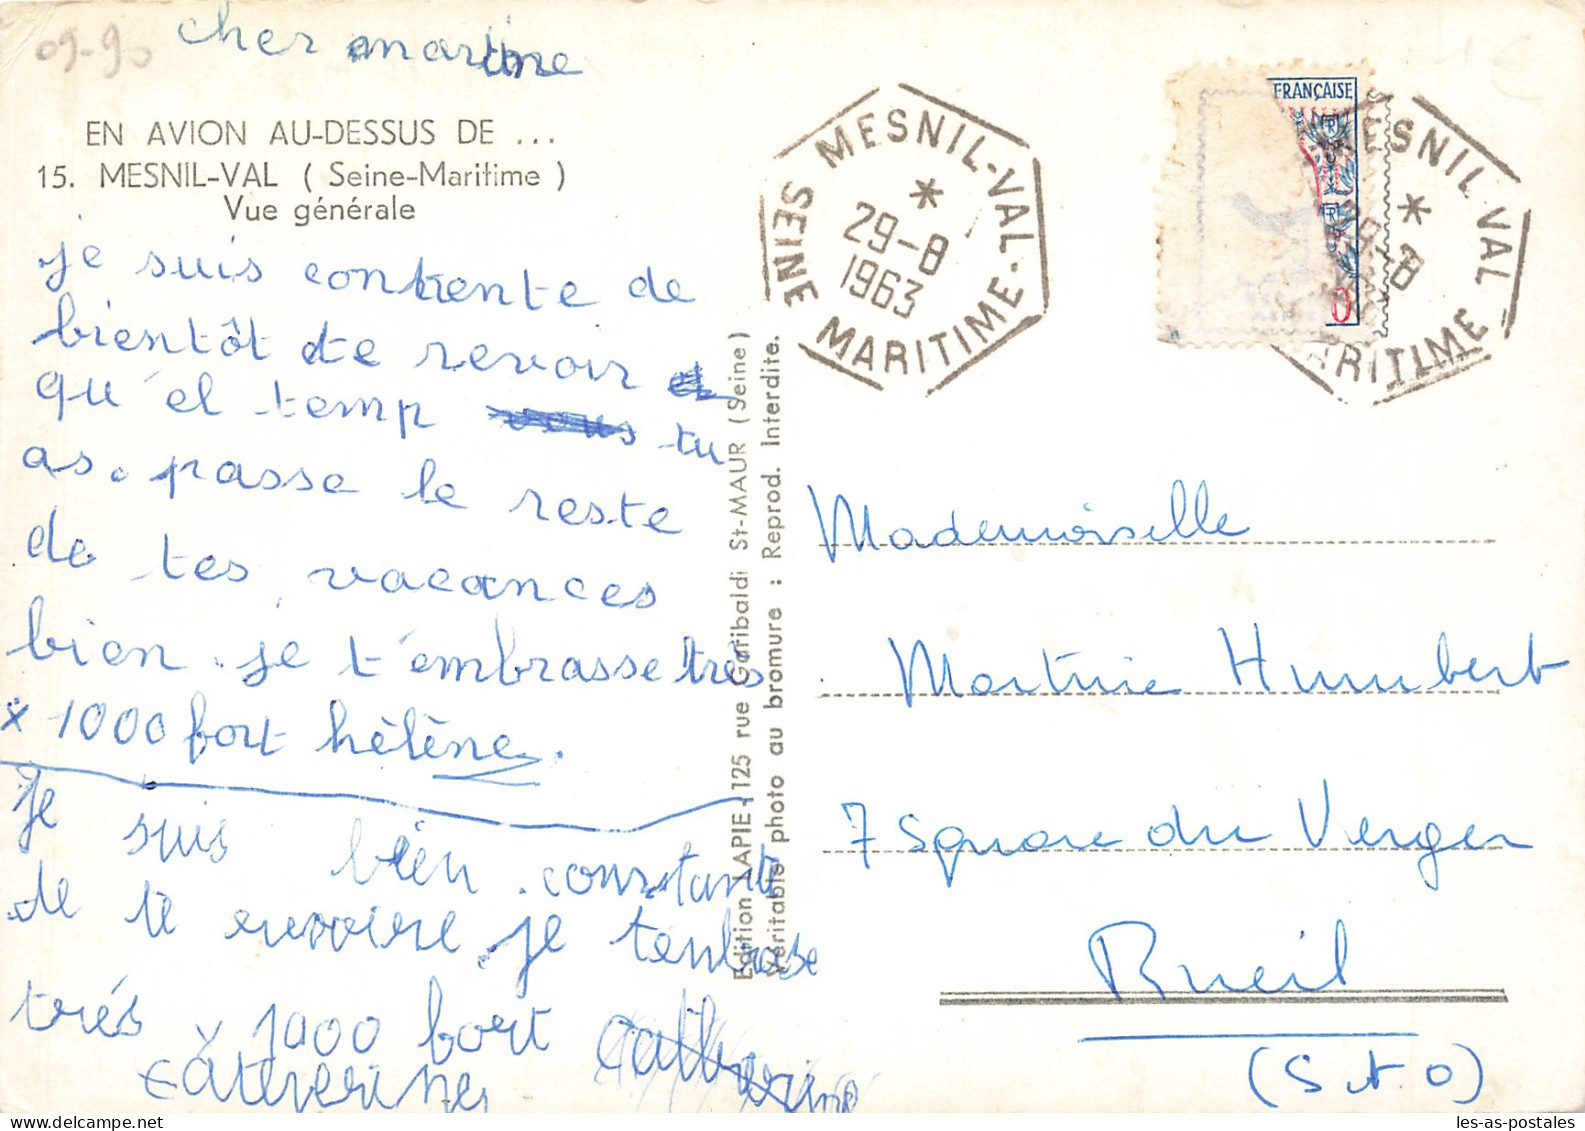 09-90
cher martine
EN AVION AU-DESSUS DE ...
15. MESNIL-VAL ( Seine-Maritime )
Vue générale
je suis contente de
bientôt de revoir
qu'el temp tu
as. passe le reste
de tes vacances
bien. je t'embrasse très
x 1000 fort hèlène.
je suis bien constante
de te revoire je tenbrase
trés x 1000 fort Catherine
Catherine
Edition LAPIE - 125 rue Garibaldi St-MAUR (Seine)
Véritable photo au bromure : Reprod. Interdite.
MESNIL-VAL
*
29-8
1963
SEINE MARITIME
FRANÇAISE
RF
RF
0
MESNIL VAL
*
29-8
MARITIME
Mademoiselle
Martine Humbert
7 Square du Verger
Rueil
(S et O)
les-as-postales